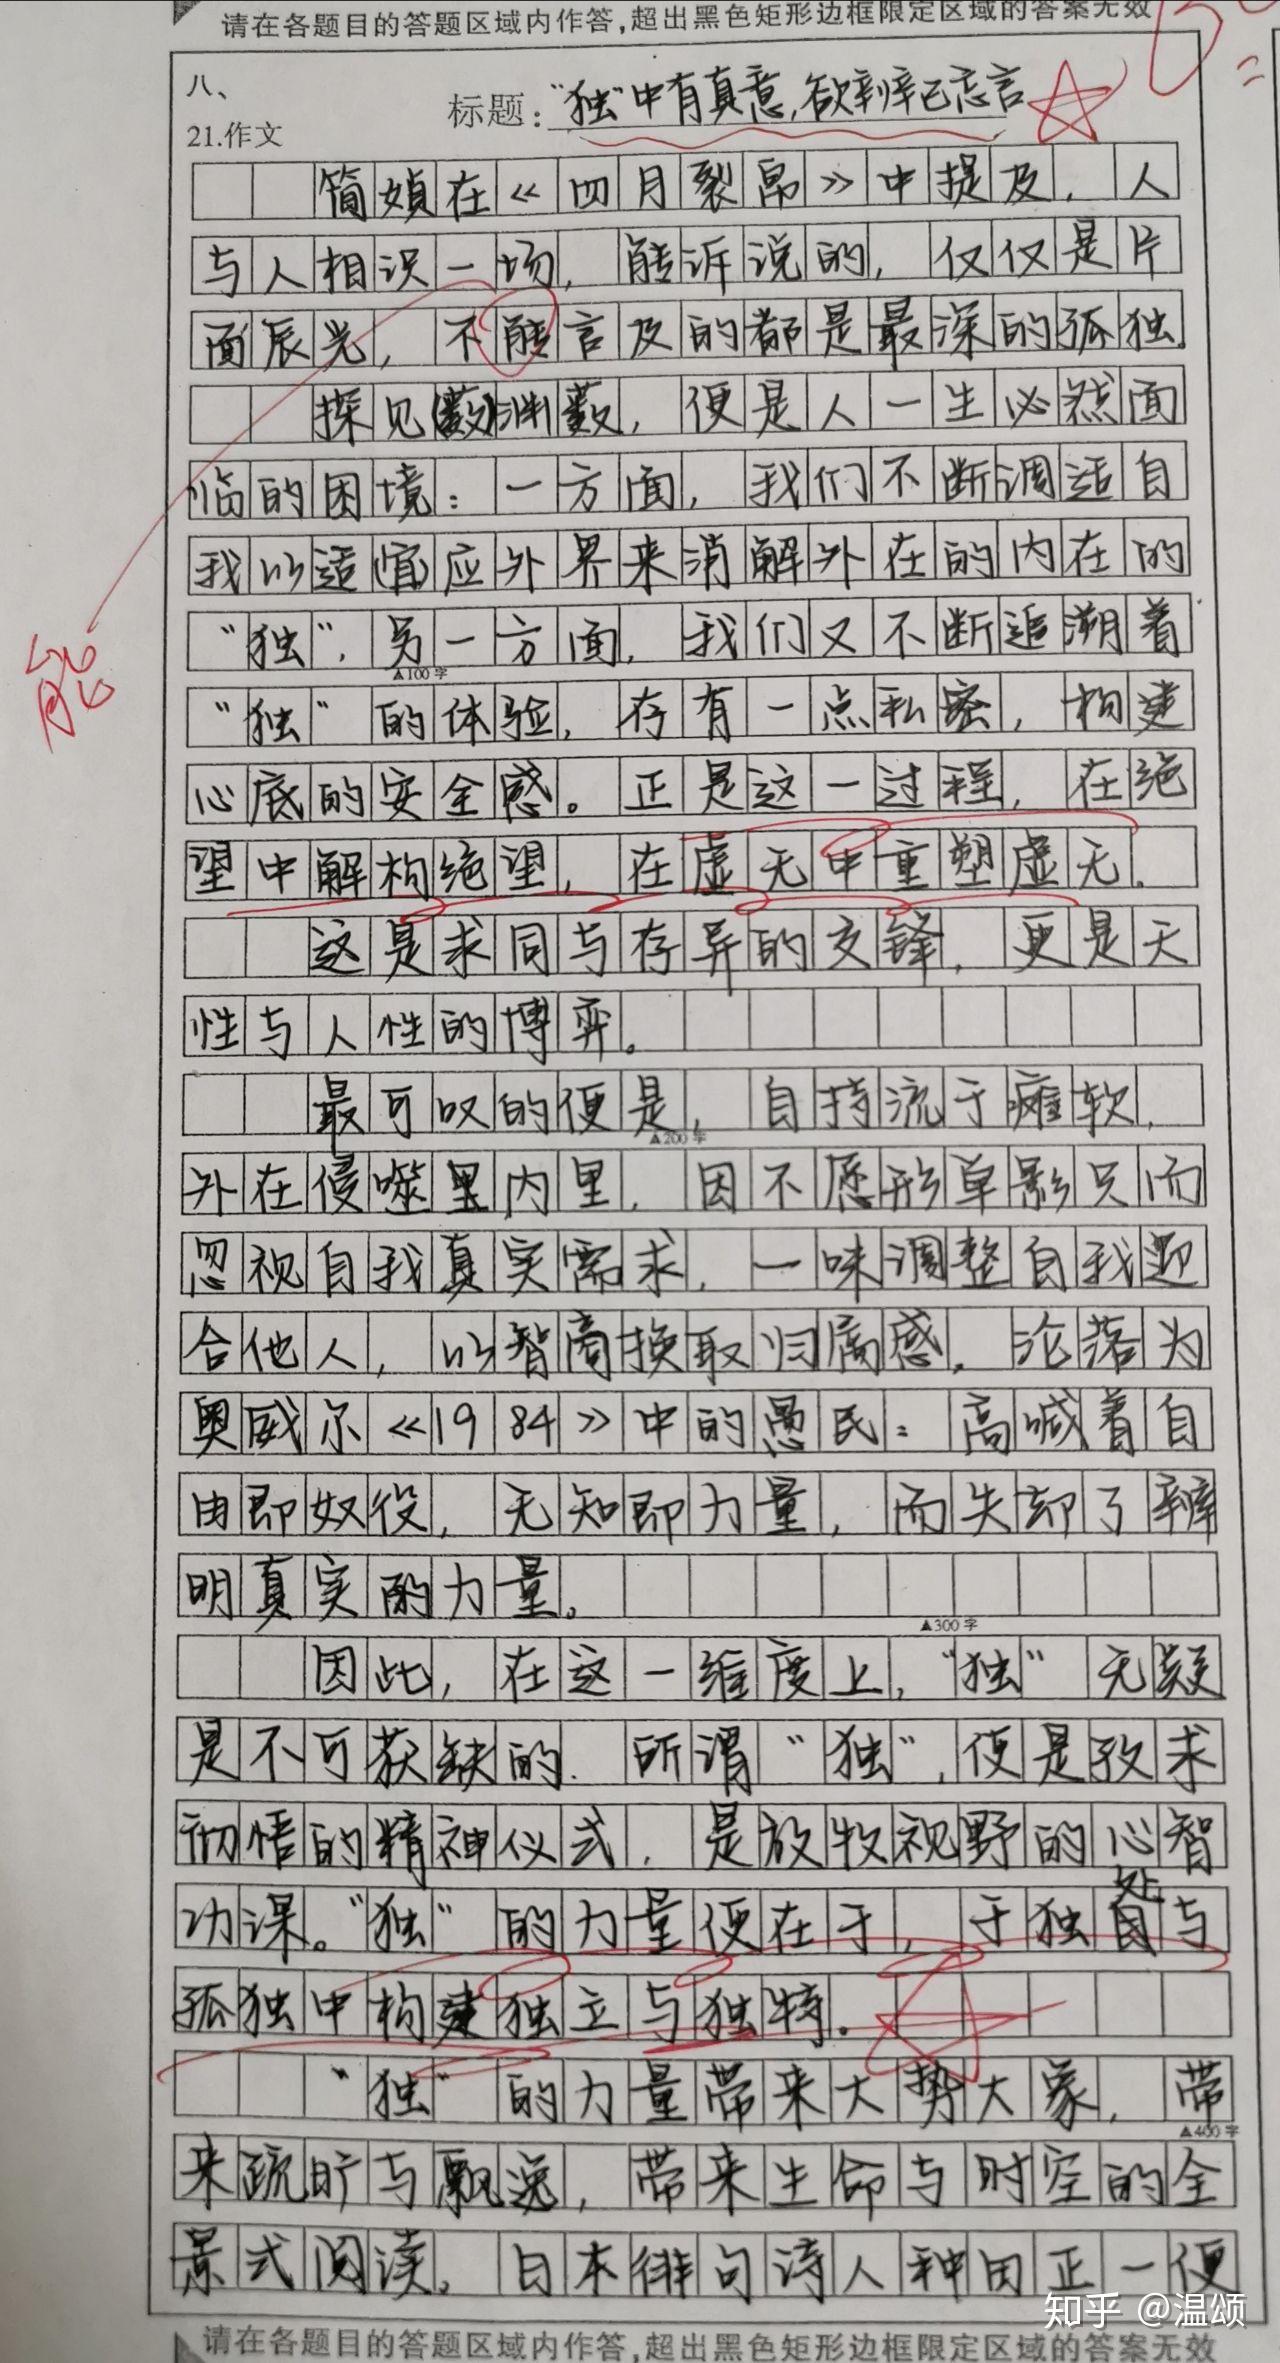 请在各题目的答题区域内作答,超出黑色矩形边框限定区域的答案无效
八、
21.作文
标题："独"中有真意,欲辛辛已忘言
简媜在《四月裂帛》中提及，人
与人相识一场，能诉说的，仅仅是片
面辰光，不能言及的都是最深的孤独。
能
探见(薮)渊薮，便是人一生必然面
临的困境：一方面，我们不断调适自
我以适(宜)应外界来消解外在的内在的
"独"，另一方面，我们又不断追溯着
▲100字
"独"的体验，存有一点私密，构建
心底的安全感。正是这一过程，在绝
望中解构绝望，在虚无中重塑虚无。
这是求同与存异的交锋，更是天
性与人性的博弈。
最可叹的便是，自持流于瘫软，
▲200字
外在侵噬里内里，因不愿形单影只而
忽视自我真实需求，一味调整自我迎
合他人，以智商换取归属感，沦落为
奥威尔《1984》中的愚民：高喊着自
由即奴役，无知即力量，而失却了辨
明真实的力量。
▲300字
因此，在这一维度上，"独"无疑
是不可获缺的。所谓"独"，便是孜求
彻悟的精神仪式，是放牧视野的心智
功课。"独"的力量便在于，于独处与
孤独中构建独立与独特。
"独"的力量带来大势大象，带
▲400字
来疏旷与飘逸，带来生命与时空的全
景式阅读。日本徘句诗人种田正一便
知乎 @温颂
请在各题目的答题区域内作答,超出黑色矩形边框限定区域的答案无效